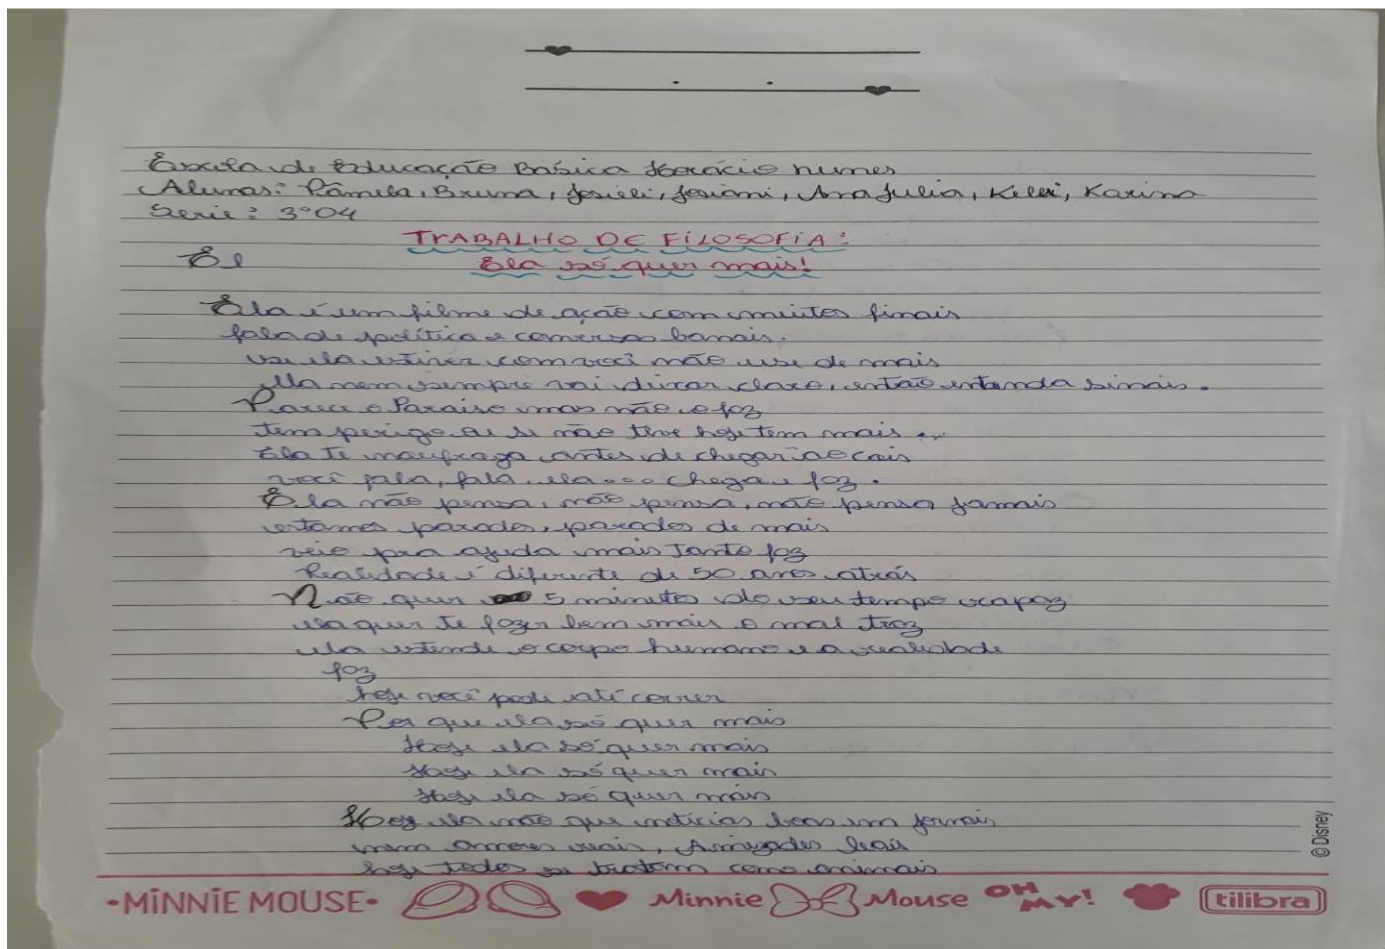 Escola de Educação Básica Horácio nunes
Alunas: Pâmela, Bruna, Josieli, Josiani, Ana Julia, Keler, Karina
Serie: 3°04
TRABALHO DE FiLOSOFiA:
El
Ela só quer mais!
Ela é um filme de ação com muitos finais
fala de política e conversas banais.
se ela estiver com você não use de mais
Ela nem sempre vai deixar claro, então entenda sinais.
Parece o Paraiso mas não o faz
tem perigo ai se não teve hoje tem mais ...
Ela Te naufraga antes de chegar ao cais
você fala, fala ela ... chega e faz.
Ela não pensa, não pensa, não pensa jamais
estamos parados, parados de mais
veio pra ajuda mais Tanto faz
Realidade é diferente de 50 anos atrás
Não quer 5 minutos do seu tempo
ela quer te fazer bem mais o mal traz
ela estende o corpo humano e a realidade
faz
hoje você pode até correr
Por que ela só quer mais
Hoje ela só quer mais
Hoje ela só quer mais
Hoje ela só quer mais
Hoj ela não que notícias boas em jornais
nem amores reais, Amizades leais
hoje todos se tratam como animais
© Disney
•MiNNiE MOUSE• Minnie Mouse OH MY! tilibra